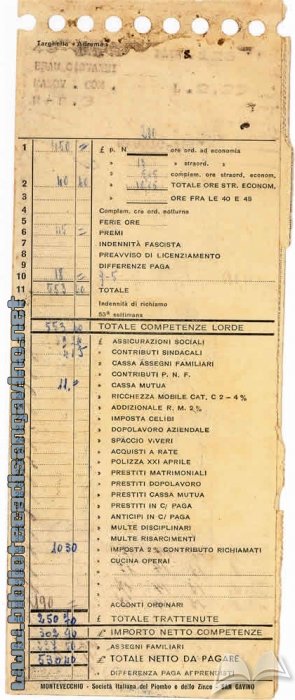 Targhetta « Adrema »
MANOV. COM.
1 450 = £ p. N. ore ord. ad economia
» » straord. »
» » complem. ore straord. econom.
2 40 40 » TOTALE ORE STR. ECONOM.
3 ORE FRA LE 40 E 48
4 Complem. ore ord. notturne
5 FERIE ORE
6 45 = PREMI
7 INDENNITÀ FASCISTA
8 PREAVVISO DI LICENZIAMENTO
9 DIFFERENZE PAGA
10 18 =
11 553 40 TOTALE
Indennità di richiamo
53ª settimana
553 40 TOTALE COMPETENZE LORDE
£ ASSICURAZIONI SOCIALI
» CONTRIBUTI SINDACALI
» CASSA ASSEGNI FAMILIARI
» CONTRIBUTI P. N. F.
» CASSA MUTUA
» RICCHEZZA MOBILE CAT. C 2 - 4 %
» ADDIZIONALE R. M. 2 %
» IMPOSTA CELIBI
» DOPOLAVORO AZIENDALE
» SPACCIO VIVERI
» ACQUISTI A RATE
» POLIZZA XXI APRILE
» PRESTITI MATRIMONIALI
» PRESTITI DOPOLAVORO
» PRESTITI CASSA MUTUA
» PRESTITI IN C/ PAGA
» ANTICIPI IN C/ PAGA
» MULTE DISCIPLINARI
» MULTE RISARCIMENTI
10 30 IMPOSTA 2 % CONTRIBUTO RICHIAMATI
» CUCINA OPERAI
190 » ACCONTI ORDINARI
250 70 £ TOTALE TRATTENUTE
£ IMPORTO NETTO COMPETENZE
» ASSEGNI FAMILIARI
530 40 £ TOTALE NETTO DA PAGARE
» DIFFERENZA PAGA APPRENDISTI
MONTEVECCHIO - Società Italiana del Piombo e dello Zinco - SAN GAVINO
www.bibliotecadisargavino.net